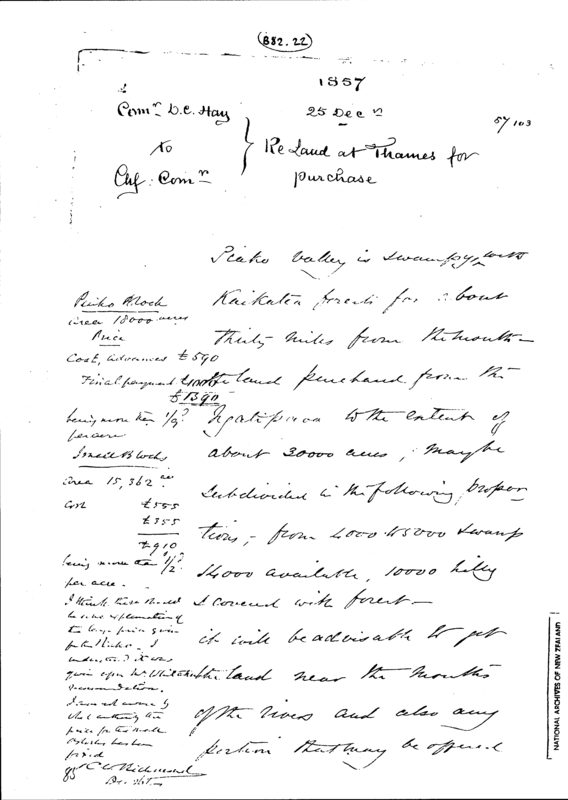 (B82.22)
1857
Comr. D.C. Hay
25 Decr
57/103
to
Re Land at Thames for
Chf. Comr
purchase
Piako Valley is swampy, with
Kaikatea forests for about
thirty miles from the mouth —
the land purchased from the
Ngatipaoa to the extent of
about 30000 acres, maybe
subdivided in the following propor
tions, — from 4000 to 5000 swamp
14000 available, 10000 hilly
& covered with forest —
it will be advisable to get
the land near the mouths
of the rivers and also any
portion that may be offered
Piako Block
area 18000 acres
Price
Cost, advances £590
Final payment
£1390
being more than 1/9?
per acre
Small Blocks
area 15,362 acs
Cost £555
£355
£910
being more than 1/2?
per acre.
I think there should
be some explanation of
the large price given
for the Piako. I
understood it was
given upon Mr
recommendation.
I am not aware by
what authority the
price for the small
has been
fixed
C W Richmond
NATIONAL ARCHIVES OF NEW ZEALAND